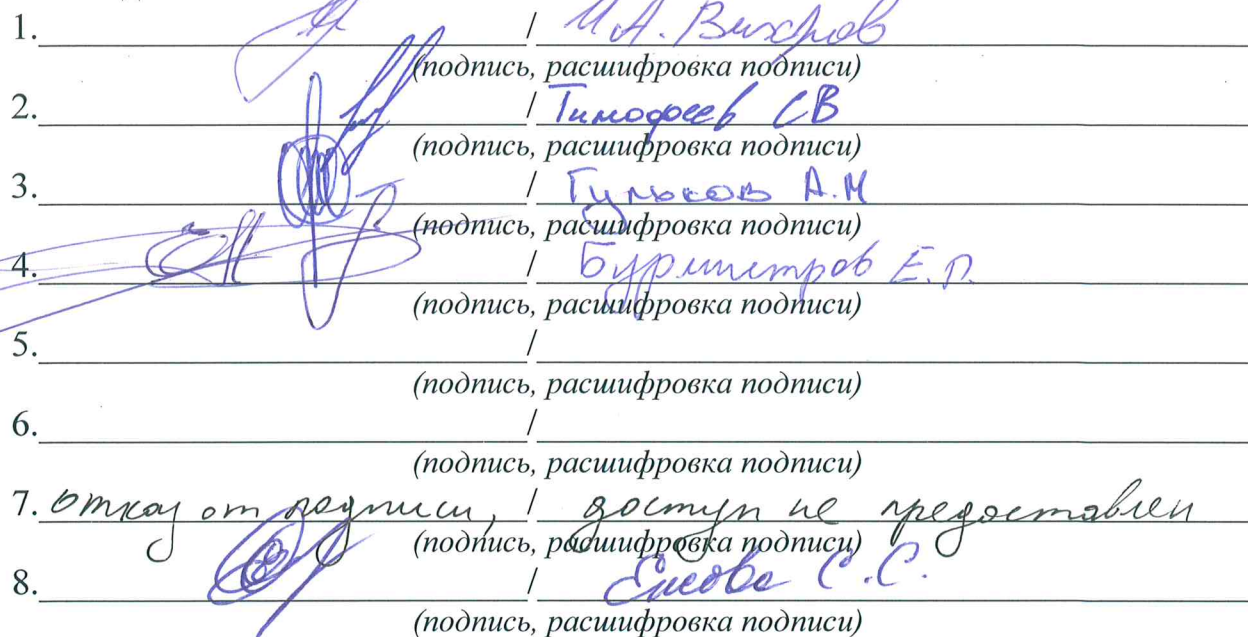 1. / И.А. Вихров
(подпись, расшифровка подписи)
2. / Тимофеев СВ
(подпись, расшифровка подписи)
3. / Гульков А.М
(подпись, расшифровка подписи)
4. / Бурмистров Е.П.
(подпись, расшифровка подписи)
5. /
(подпись, расшифровка подписи)
6. /
(подпись, расшифровка подписи)
7. отказ от подписи, / доступ не предоставлен
(подпись, расшифровка подписи)
8. / С.С.
(подпись, расшифровка подписи)